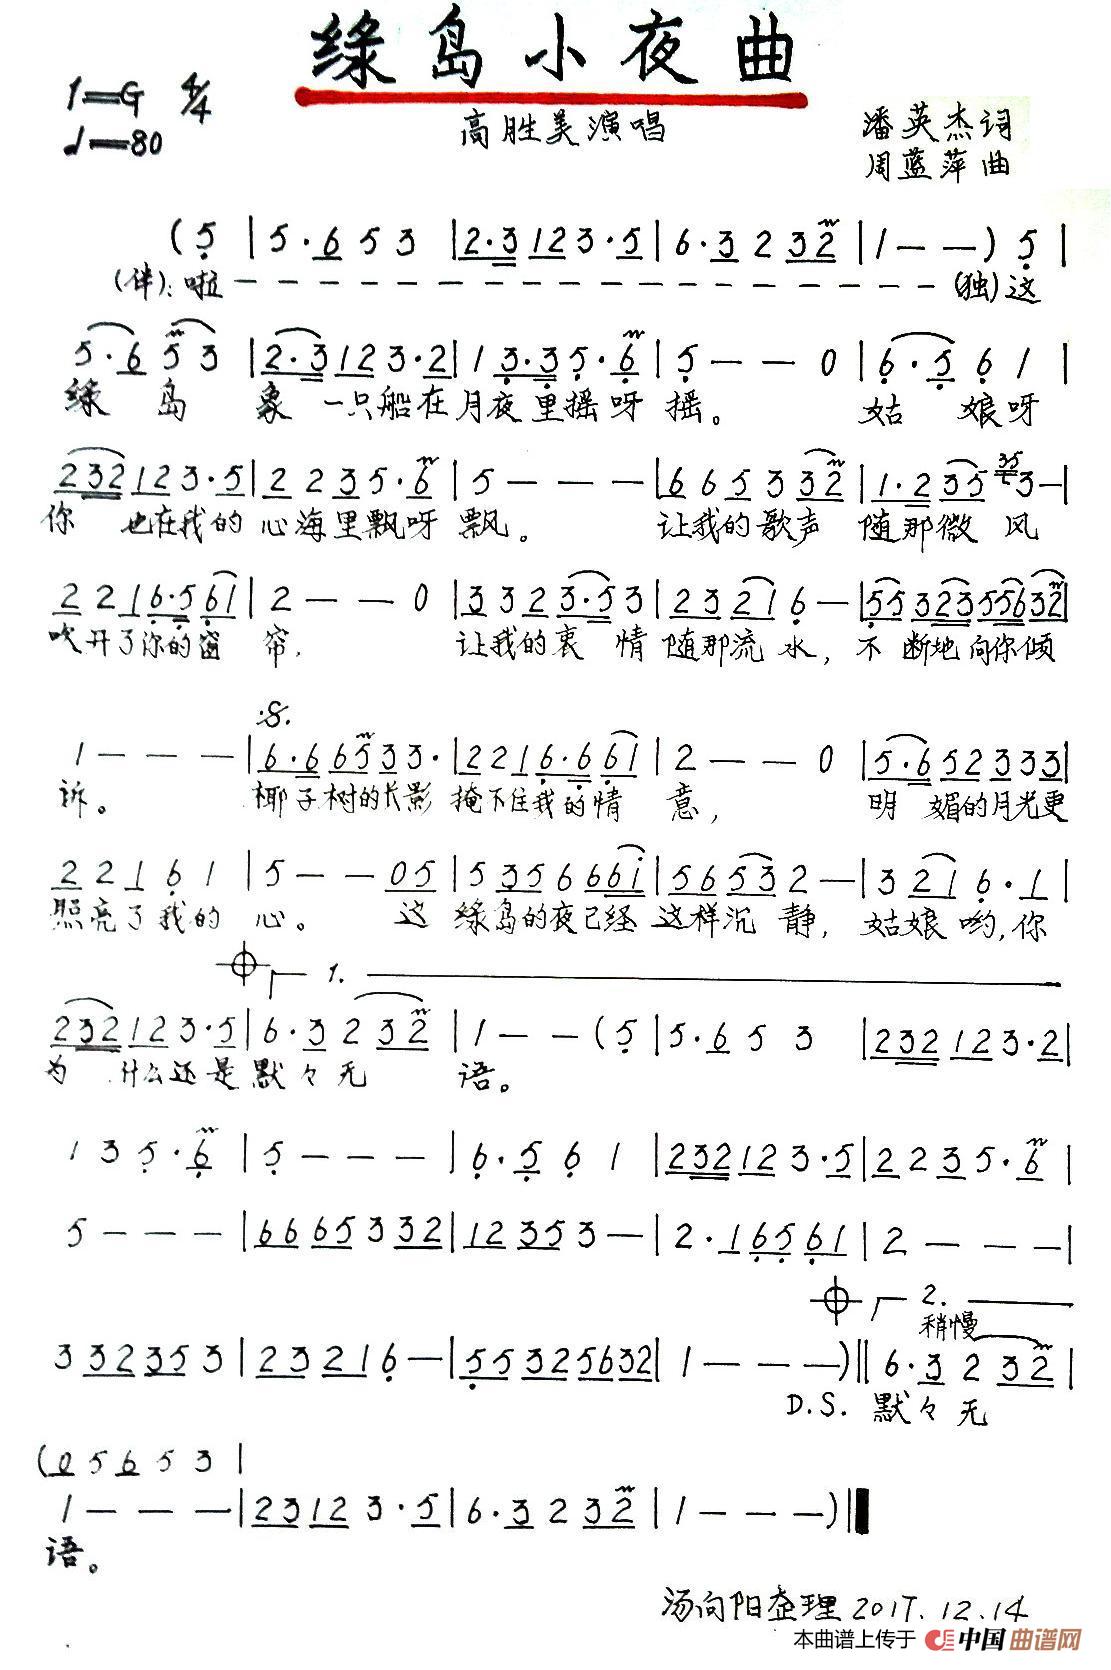 绿岛小夜曲
1=G 4/4
♩=80
高胜美演唱
潘英杰词
周蓝萍曲
(5 | 5·6 5 3 | 2·3 1 2 3·5 | 6·3 2 3 2 | 1 - - ) 5 |
(伴):啦 - - - - - - - - - - - - - - - - - (独)这
5·6 5 3 | 2·3 1 2 3·2 | 1 3·3 5·6 | 5 - - 0 | 6·5 6 1 |
绿 岛 象 一只船在月夜里摇呀摇。 姑 娘呀
2 3 2 1 2 3·5 | 2 2 3 5·6 | 5 - - - | 6 6 5 3 3 3 2 | 1·2 3 5 35 3 - |
你 也在我的心海里飘呀飘。 让我的歌声 随那微 风
2 2 1 6·5 6 1 | 2 - - 0 | 3 3 2 3·5 3 | 2 3 2 1 6 - | 5 5 3 2 3 5 5 6 3 2 |
吹开了你的窗 帘, 让我的衷 情 随那流 水, 不 断地向你倾
1 - - - | 6·6 6 5 3 3· | 2 2 1 6·6 6 1 | 2 - - 0 | 5·6 5 2 3 3 3 |
诉。 椰子树的长影 掩下住我的情 意, 明 媚的月光更
2 2 1 6 1 | 5 - - 0 5 | 5 3 5 6 6 6 i | 5 6 5 3 2 - | 3 2 1 6·1 |
照亮了我的 心。 这 绿岛的夜已经 这样沉 静, 姑娘哟,你
1.
2 3 2 1 2 3·5 | 6·3 2 3 2 | 1 - - (5 | 5·6 5 3 | 2 3 2 1 2 3·2 |
为 什么还是默々无 语。
1 3 5·6 | 5 - - - | 6·5 6 1 | 2 3 2 1 2 3·5 | 2 2 3 5·6 |
5 - - - | 6 6 6 5 3 3 2 | 1 2 3 5 3 - | 2·1 6 5 6 1 | 2 - - - |
2.
稍慢
3 3 2 3 5 3 | 2 3 2 1 6 - | 5 5 3 2 5 6 3 2 | 1 - - - ) || 6·3 2 3 2 |
D.S. 默々无
(0 5 6 5 3 |
1 - - - | 2 3 1 2 3·5 | 6·3 2 3 2 | 1 - - - ) ||
语。
汤向阳整理 2017.12.14
本曲谱上传于 中国曲谱网